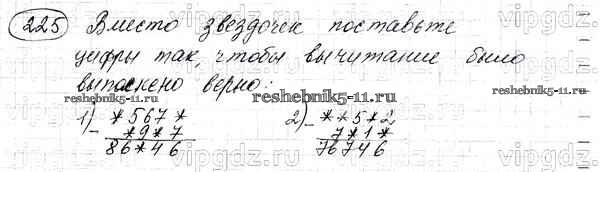 225 Вместо звездочек поставьте
цифры так, чтобы вычитание было
выполнено верно:
reshebnik5-11.ru
reshebnik5-11.ru
vipgdz.ru
1) *567* 2) **5*2
- *9*7 - 7*1*
86*46 76746
reshebnik5-11.ru